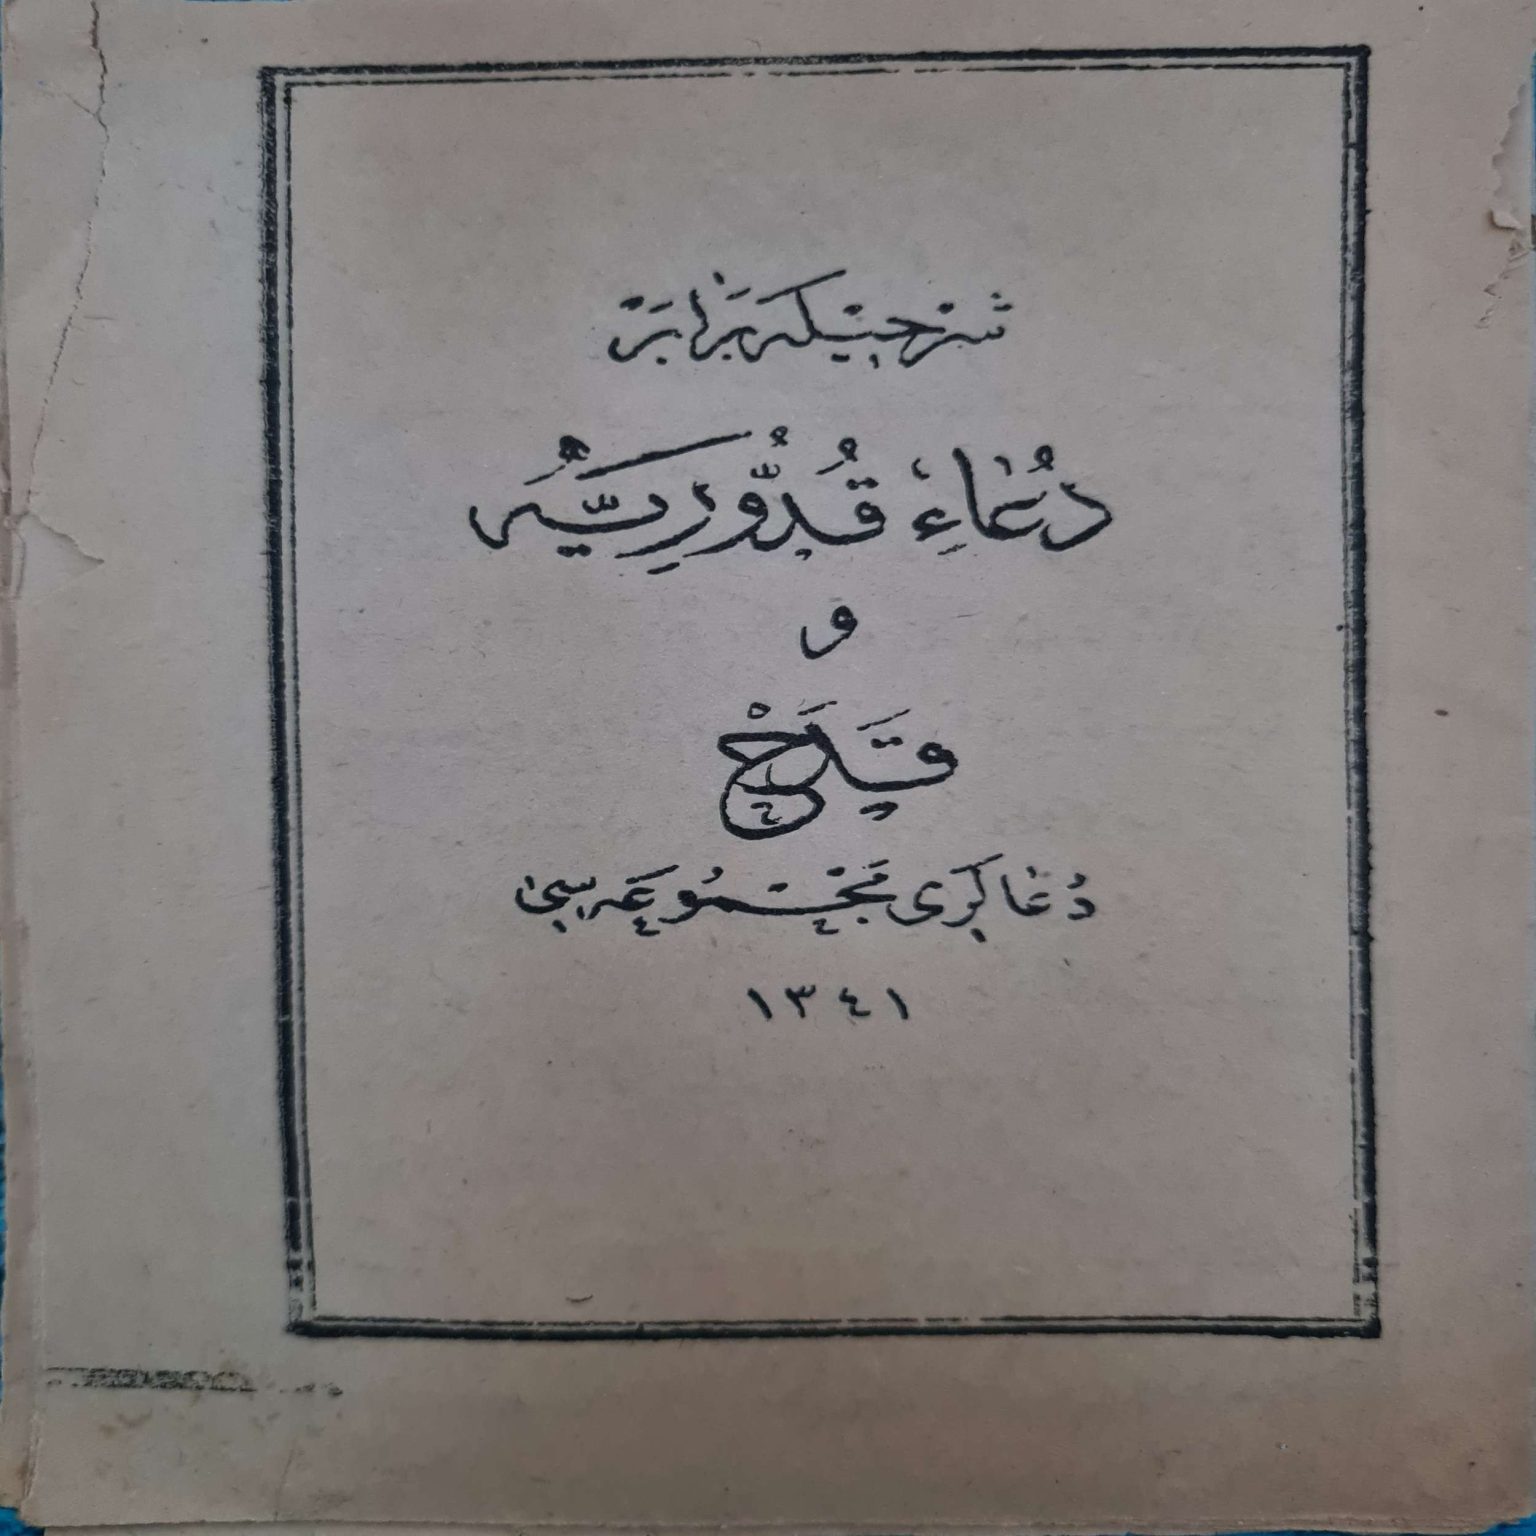 شرحيله برابر
دُعَاءِ قُدُّورِيَّه
و
قَدَحْ
دُعالرى مجموعه سى
١٣٤١